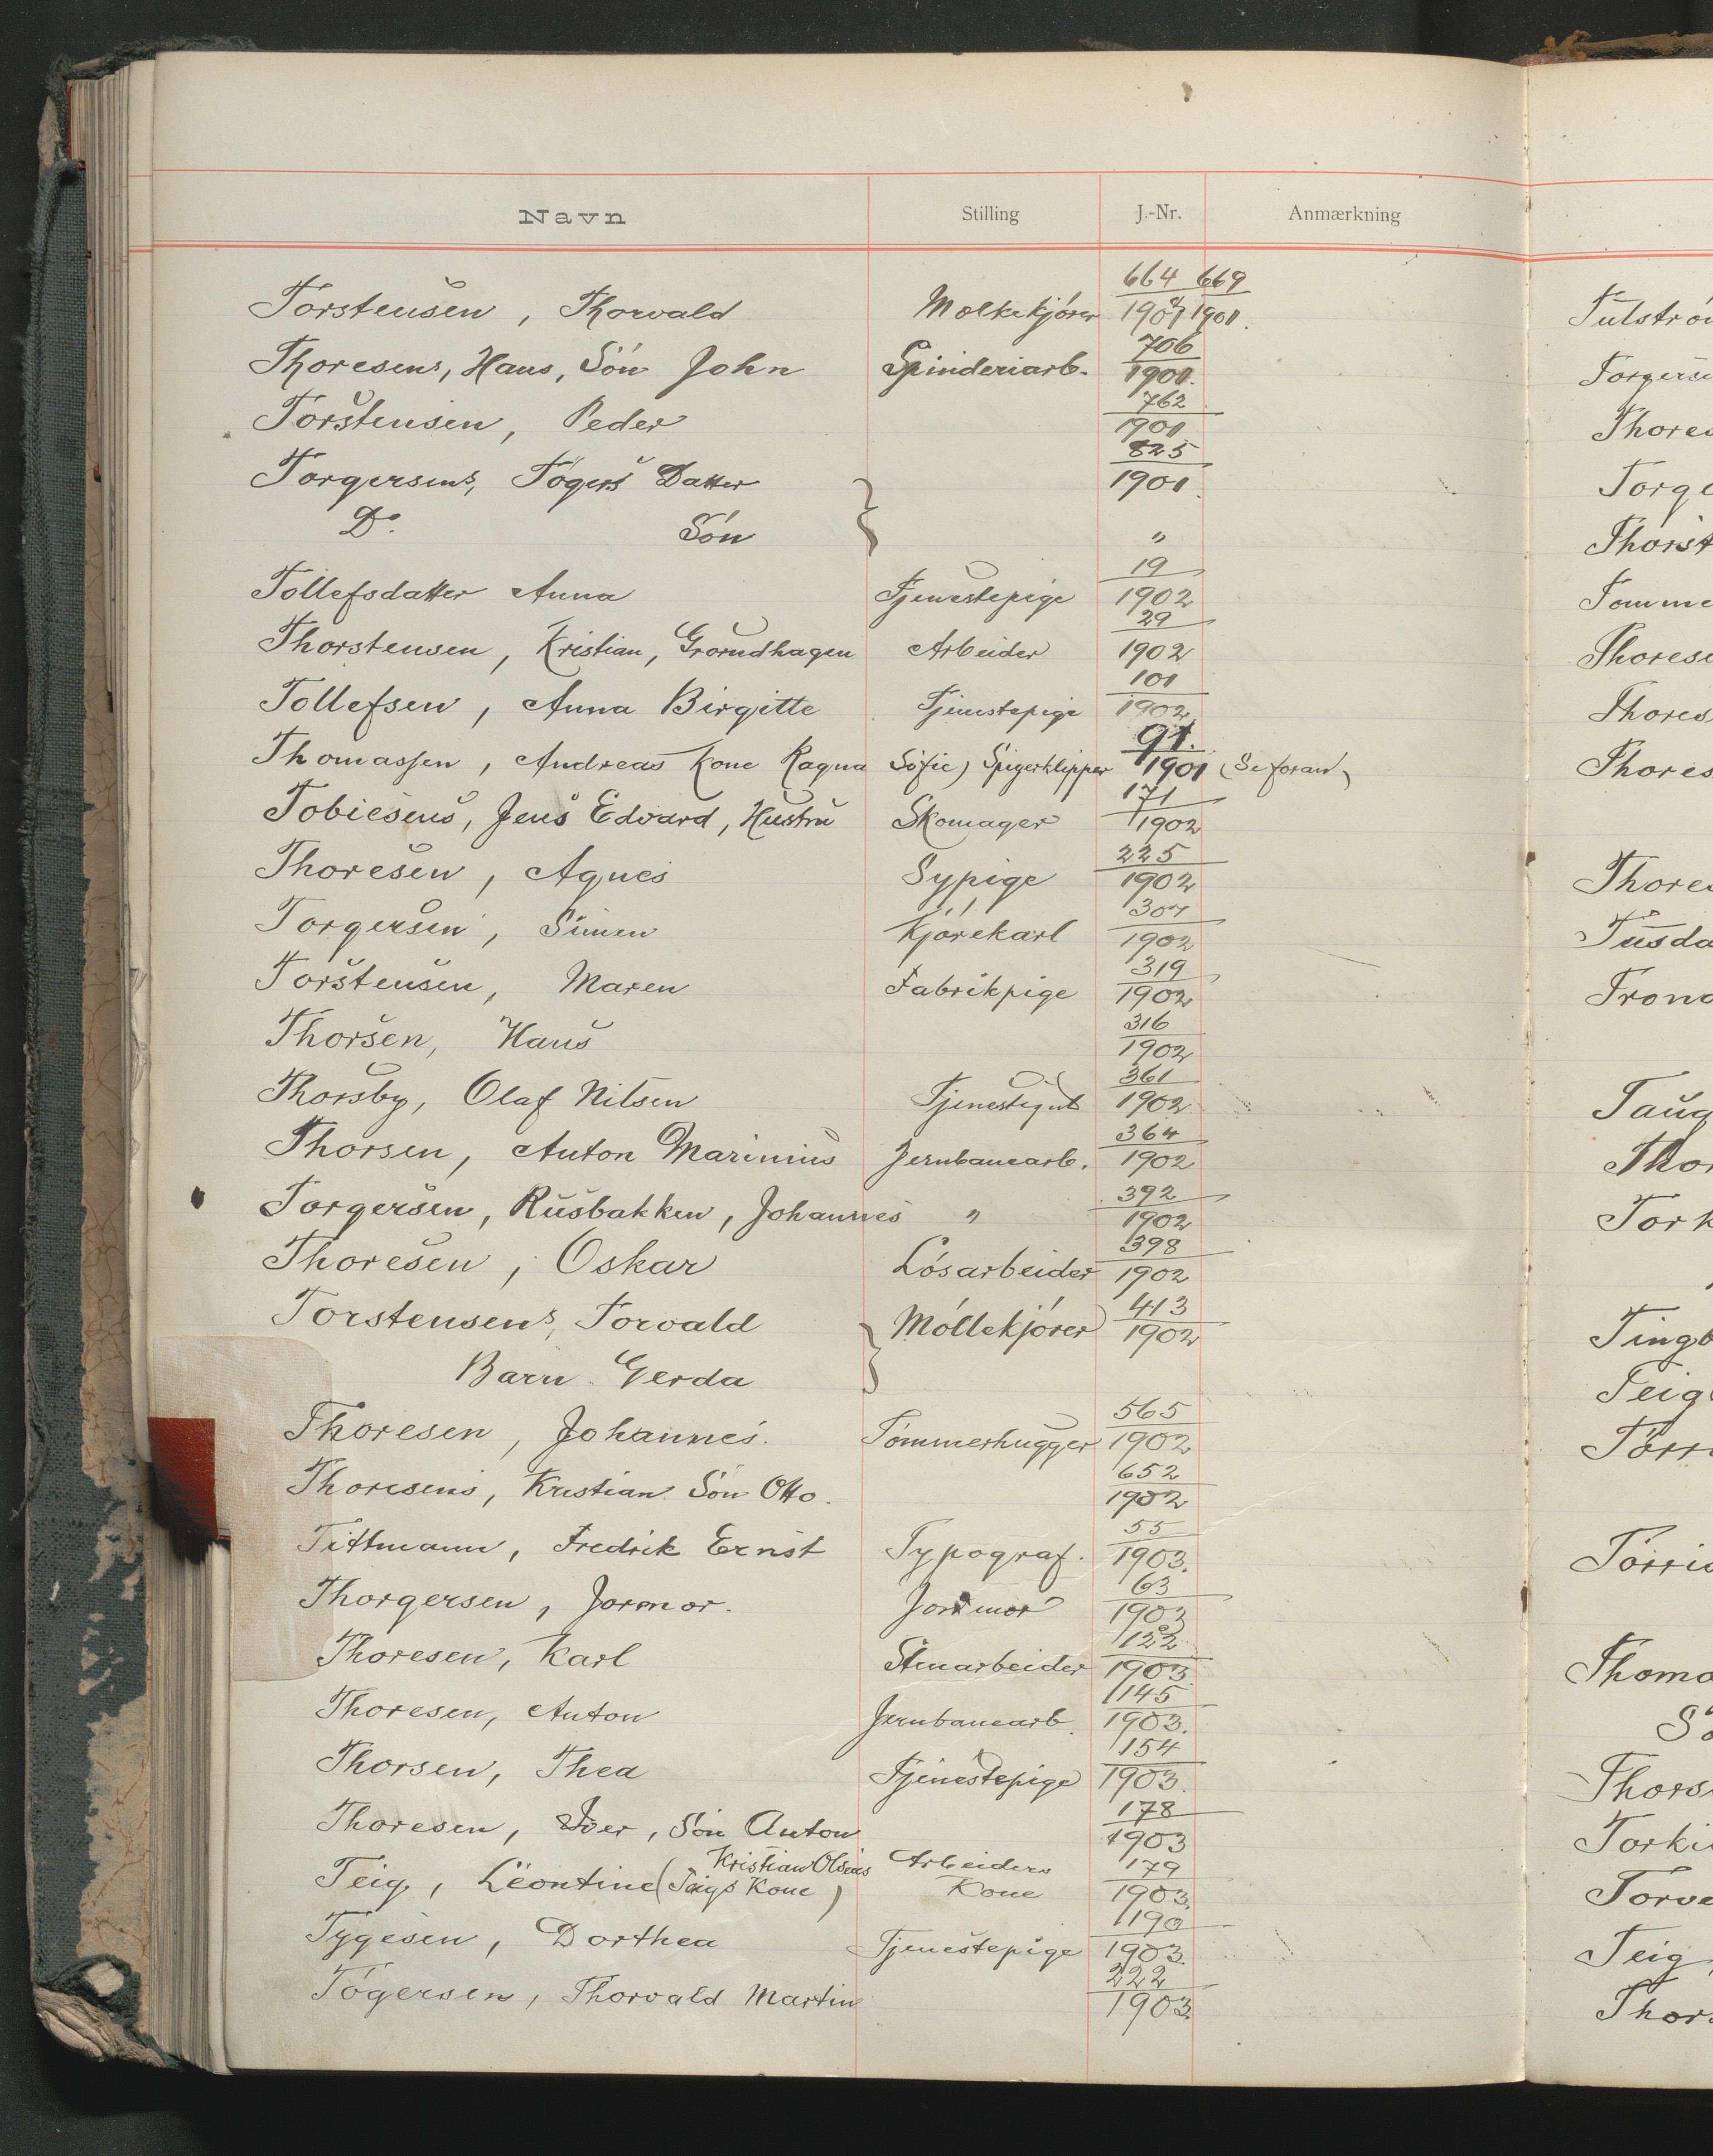 Navn Stilling J.-Nr. Anmærkning
Torstensen, Thorvald Molkekjører 664/1901 669/1901.
Thoresens, Hans, Søn John Spinderiarb. 706/1901.
Torstensen, Peder 762/1901
Torgersens, Tøgers Datter 825/1901.
Do. Søn "
Tollefsdatter Anna Tjenestepige 19/1902
Thorstensen, Kristian, Grorudhagen Arbeider 29/1902
Tollefsen, Anna Birgitte Tjenestepige 101/1902
Thomassen, Andreas Kone Ragna Sofie) Spigerklipper 91./1901 (Se foran)
Tobiesens, Jens Edvard, Hustru Skomager 171/1902
Thoresen, Agnes Sypige 225/1902
Torgersen, Simen Kjørekarl 307/1902
Torstensen, Maren Fabrikpige 319/1902
Thorsen, Hans 316/1902
Thorsby, Olaf Nilsen Tjenestegut 361/1902
Thorsen, Anton Marinius Jernbanearb. 364/1902
Torgersen, Rusbakken, Johannes " 392/1902
Thoresen, Oskar Løsarbeider 398/1902
Torstensens, Torvald Møllekjører 413/1902
Barn Gerda
Thoresen, Johannes. Tømmerhugger 565/1902
Thoresens, Kristian Søn Otto. 652/1902
Tittmann, Fredrik Ernst Typograf. 55/1903.
Thorgersen, Jormor. Jormor 63/1903
Thoresen, Karl Stenarbeider 122/1903
Thoresen, Anton Jernbanearb. 145/1903.
Thorsen, Thea Tjenestepige 154/1903.
Thoresen, Iver, Søn Anton 178/1903
Teig, Leontine (Kristian Olsens Teigs Kone) Arbeiders Kone 179/1903.
Tygesen, Dorthea Tjenestepige 190/1903
Tøgersen, Thorvald Martin 222/1903.